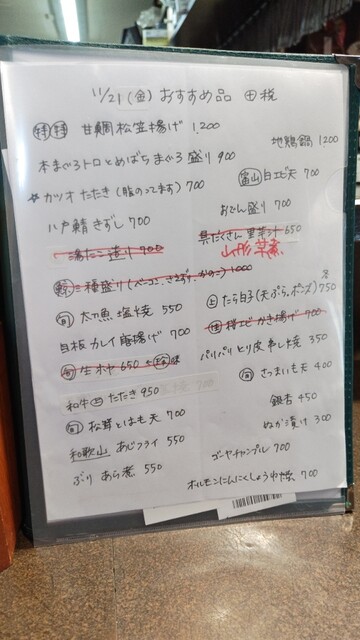 11/21(金) おすすめ品 ⊕税
特特 甘鯛松笠揚げ 1,200
本まぐろトロとめばちまぐろ盛り 900
☆カツオたたき(脂のってます) 700
八戸鯖きずし 700
湯たこ造り 700
三種盛り(ベーコン、さえずり、かのこ) 1000
旬 太刀魚塩焼 550
白板カレイ唐揚げ 700
旬 生ホヤ 650
和牛 たたき 950
旬 松茸とはも天 700
和歌山 あじフライ 550
ぶりあら煮 550
地鶏鍋 1200
富山 白エビ天 700
おでん盛り 700
具だくさん里芋汁 650
山形 芋煮
上 たら白子(天ぷら。ポンズ) 750
桜エビかき揚げ 700
パリパリとり皮串し焼 350
旬 さつまいも天 400
銀杏 450
ぬか漬け 300
ゴーヤチャンプル 700
ホルモンにんにくしょうゆ焼 700